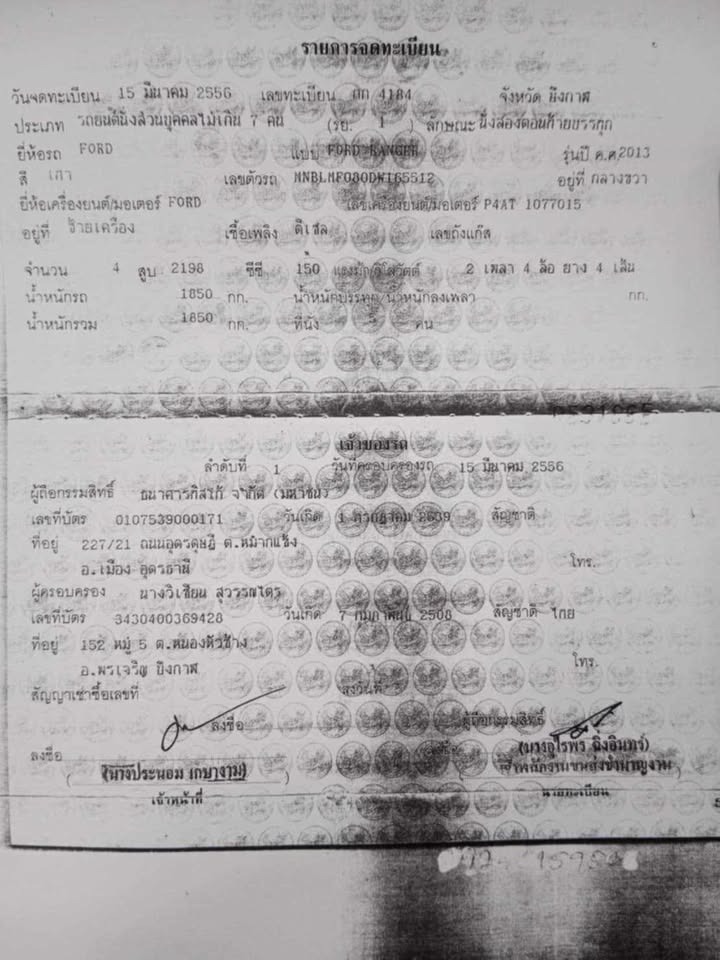 รายการจดทะเบียน
วันจดทะเบียน 15 มีนาคม 2556 เลขทะเบียน กก 4184 จังหวัด บึงกาฬ
ประเภท รถยนต์นั่งส่วนบุคคลไม่เกิน 7 คน (รย. 1 ) ลักษณะ นั่งสองตอนท้ายบรรทุก
ยี่ห้อรถ FORD แบบ FORD RANGER รุ่นปี ค.ศ.2013
สี เทา เลขตัวรถ MNBLMFO80DW165512 อยู่ที่ กลางขวา
ยี่ห้อเครื่องยนต์/มอเตอร์ FORD เลขเครื่องยนต์/มอเตอร์ P4AT 1077015
อยู่ที่ ซ้ายเครื่อง เชื้อเพลิง ดีเซล เลขถังแก๊ส
จำนวน 4 สูบ 2198 ซีซี 150 แรงม้า/กิโลวัตต์ 2 เพลา 4 ล้อ ยาง 4 เส้น
น้ำหนักรถ 1850 กก. น้ำหนักบรรทุก/น้ำหนักลงเพลา กก.
น้ำหนักรวม 1850 กก. ที่นั่ง คน
เจ้าของรถ
ลำดับที่ 1 วันที่ครอบครองรถ 15 มีนาคม 2556
ผู้ถือกรรมสิทธิ์ ธนาคารทิสโก้ จำกัด (มหาชน)
เลขที่บัตร 0107539000171 วันเกิด 1 พฤษภาคม 2539 สัญชาติ
ที่อยู่ 227/21 ถนนอุดรดุษฎี ต.หมากแข้ง
อ.เมือง อุดรธานี โทร.
ผู้ครอบครอง นางวิเชียน สุวรรณไตร
เลขที่บัตร 3430400369428 วันเกิด 7 กุมภาพันธ์ 2508 สัญชาติ ไทย
ที่อยู่ 152 หมู่ 5 ต.หนองหัวช้าง
อ.พรเจริญ บึงกาฬ โทร.
สัญญาเช่าซื้อเลขที่ ลงวันที่
ลงชื่อ ผู้ถือกรรมสิทธิ์
ลงชื่อ
(นางประนอม เกษางาม)
เจ้าหน้าที่
นายทะเบียน